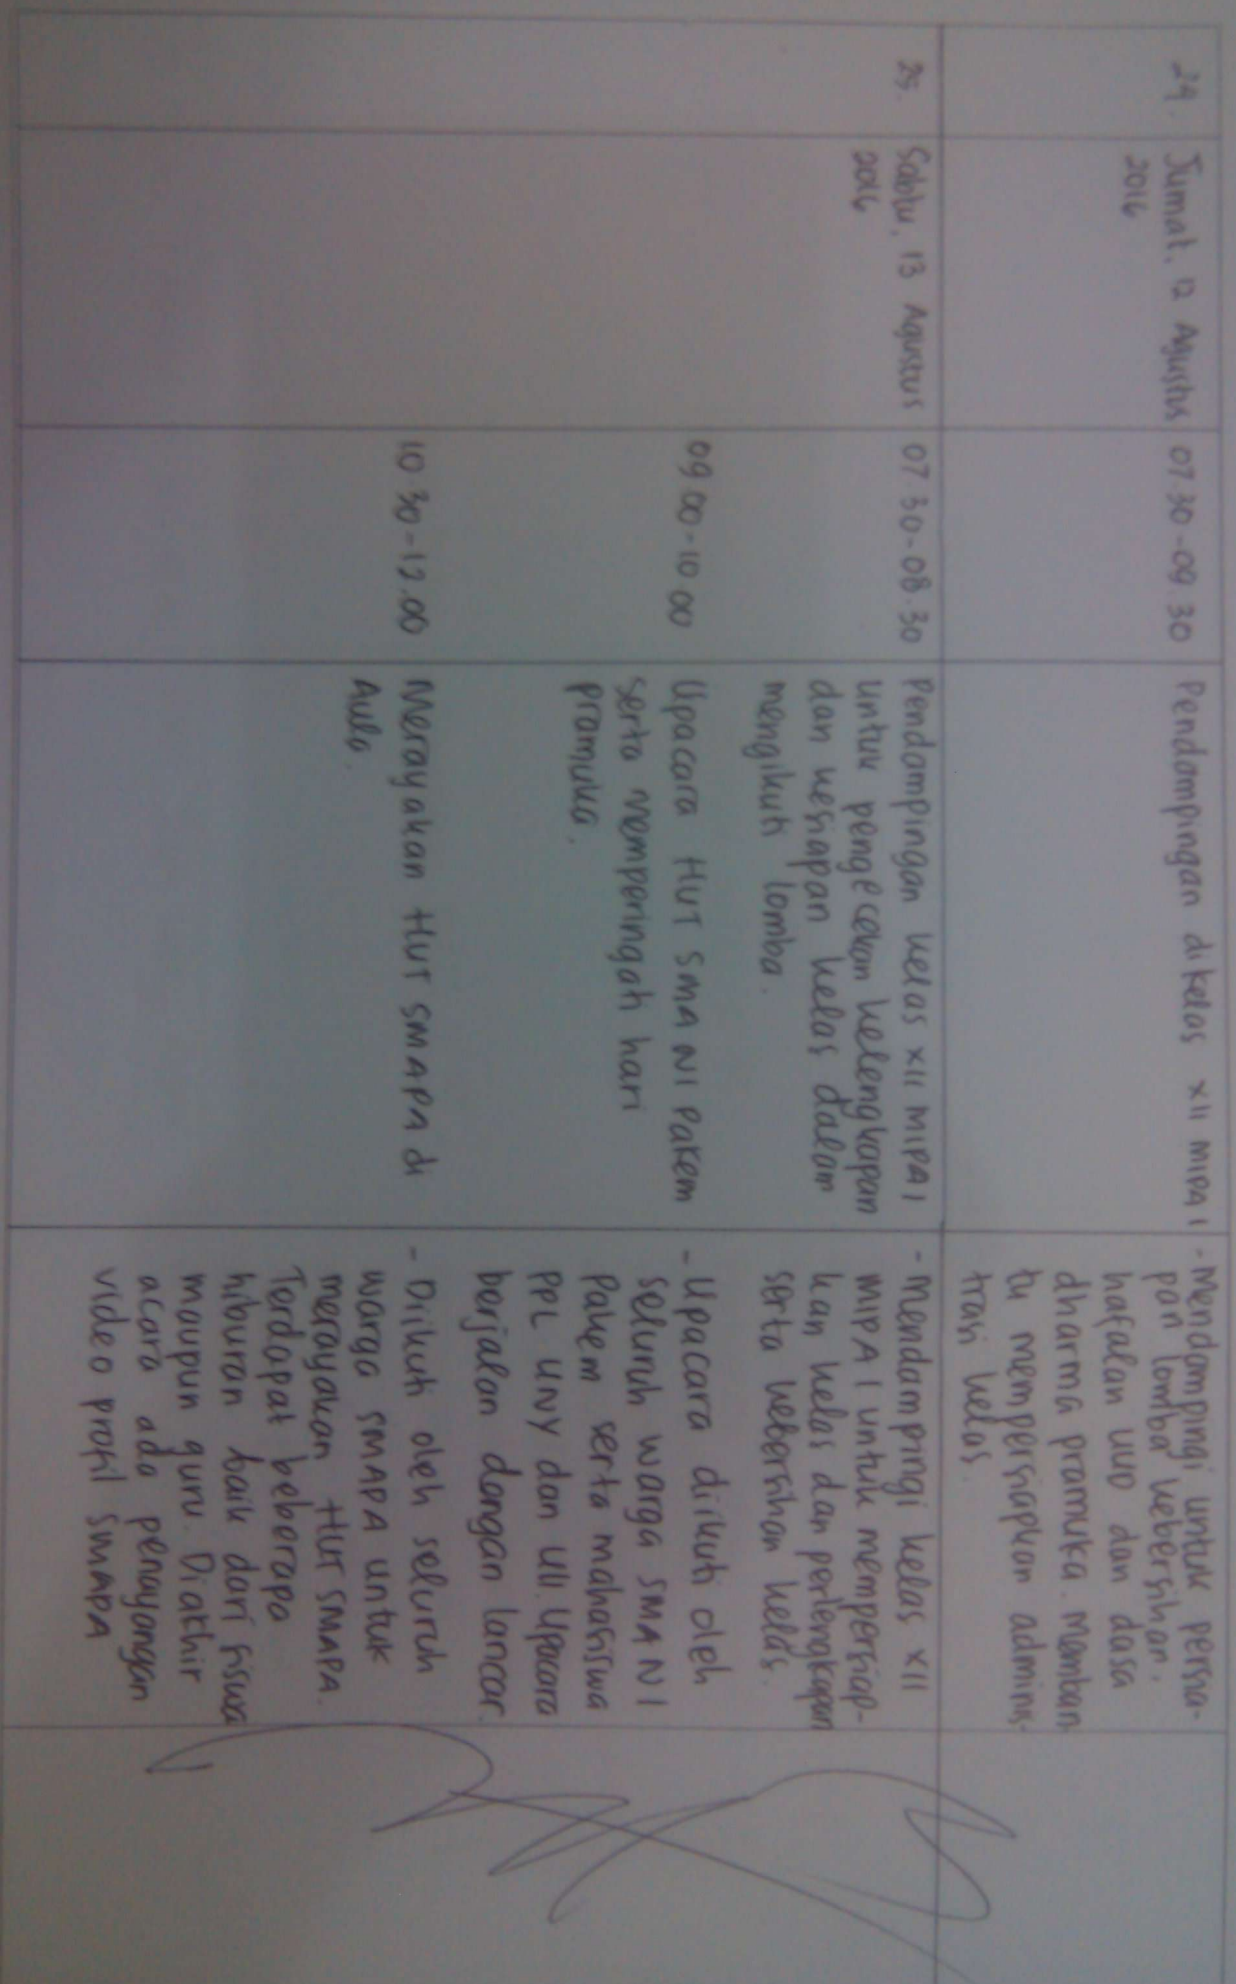 24.
Jumat, 12 Agustus
2016
07.30-09.30
Pendampingan dikelas XII MIPA 1
- Mendampingi untuk persia-
pan lomba kebersihan,
hafalan UUD dan dasa
dharma pramuka. Memban
tu mempersiapkan adminis-
trasi kelas.
25.
Sabtu, 13 Agustus
2016
07.30-08.30
Pendampingan kelas XII MIPA 1
untuk pengecekan kelengkapan
dan kesiapan kelas dalam
mengikuti lomba.
- Mendampingi kelas XII
MIPA 1 untuk mempersiap-
kan kelas dan perlengkapan
serta kebersihan kelas.
09.00-10.00
Upacara HUT SMA N 1 Pakem
serta memperingati hari
pramuka.
- Upacara diikuti oleh
seluruh warga SMA N 1
Pakem serta mahasiswa
PPL UNY dan UII. Upacara
berjalan dengan lancar.
10.30-12.00
Merayakan HUT SMAPA di
Aula.
- Diikuti oleh seluruh
warga SMAPA untuk
merayakan HUT SMAPA.
Terdapat beberapa
hiburan baik dari siswa
maupun guru. Diakhir
acara ada penayangan
video profil SMAPA